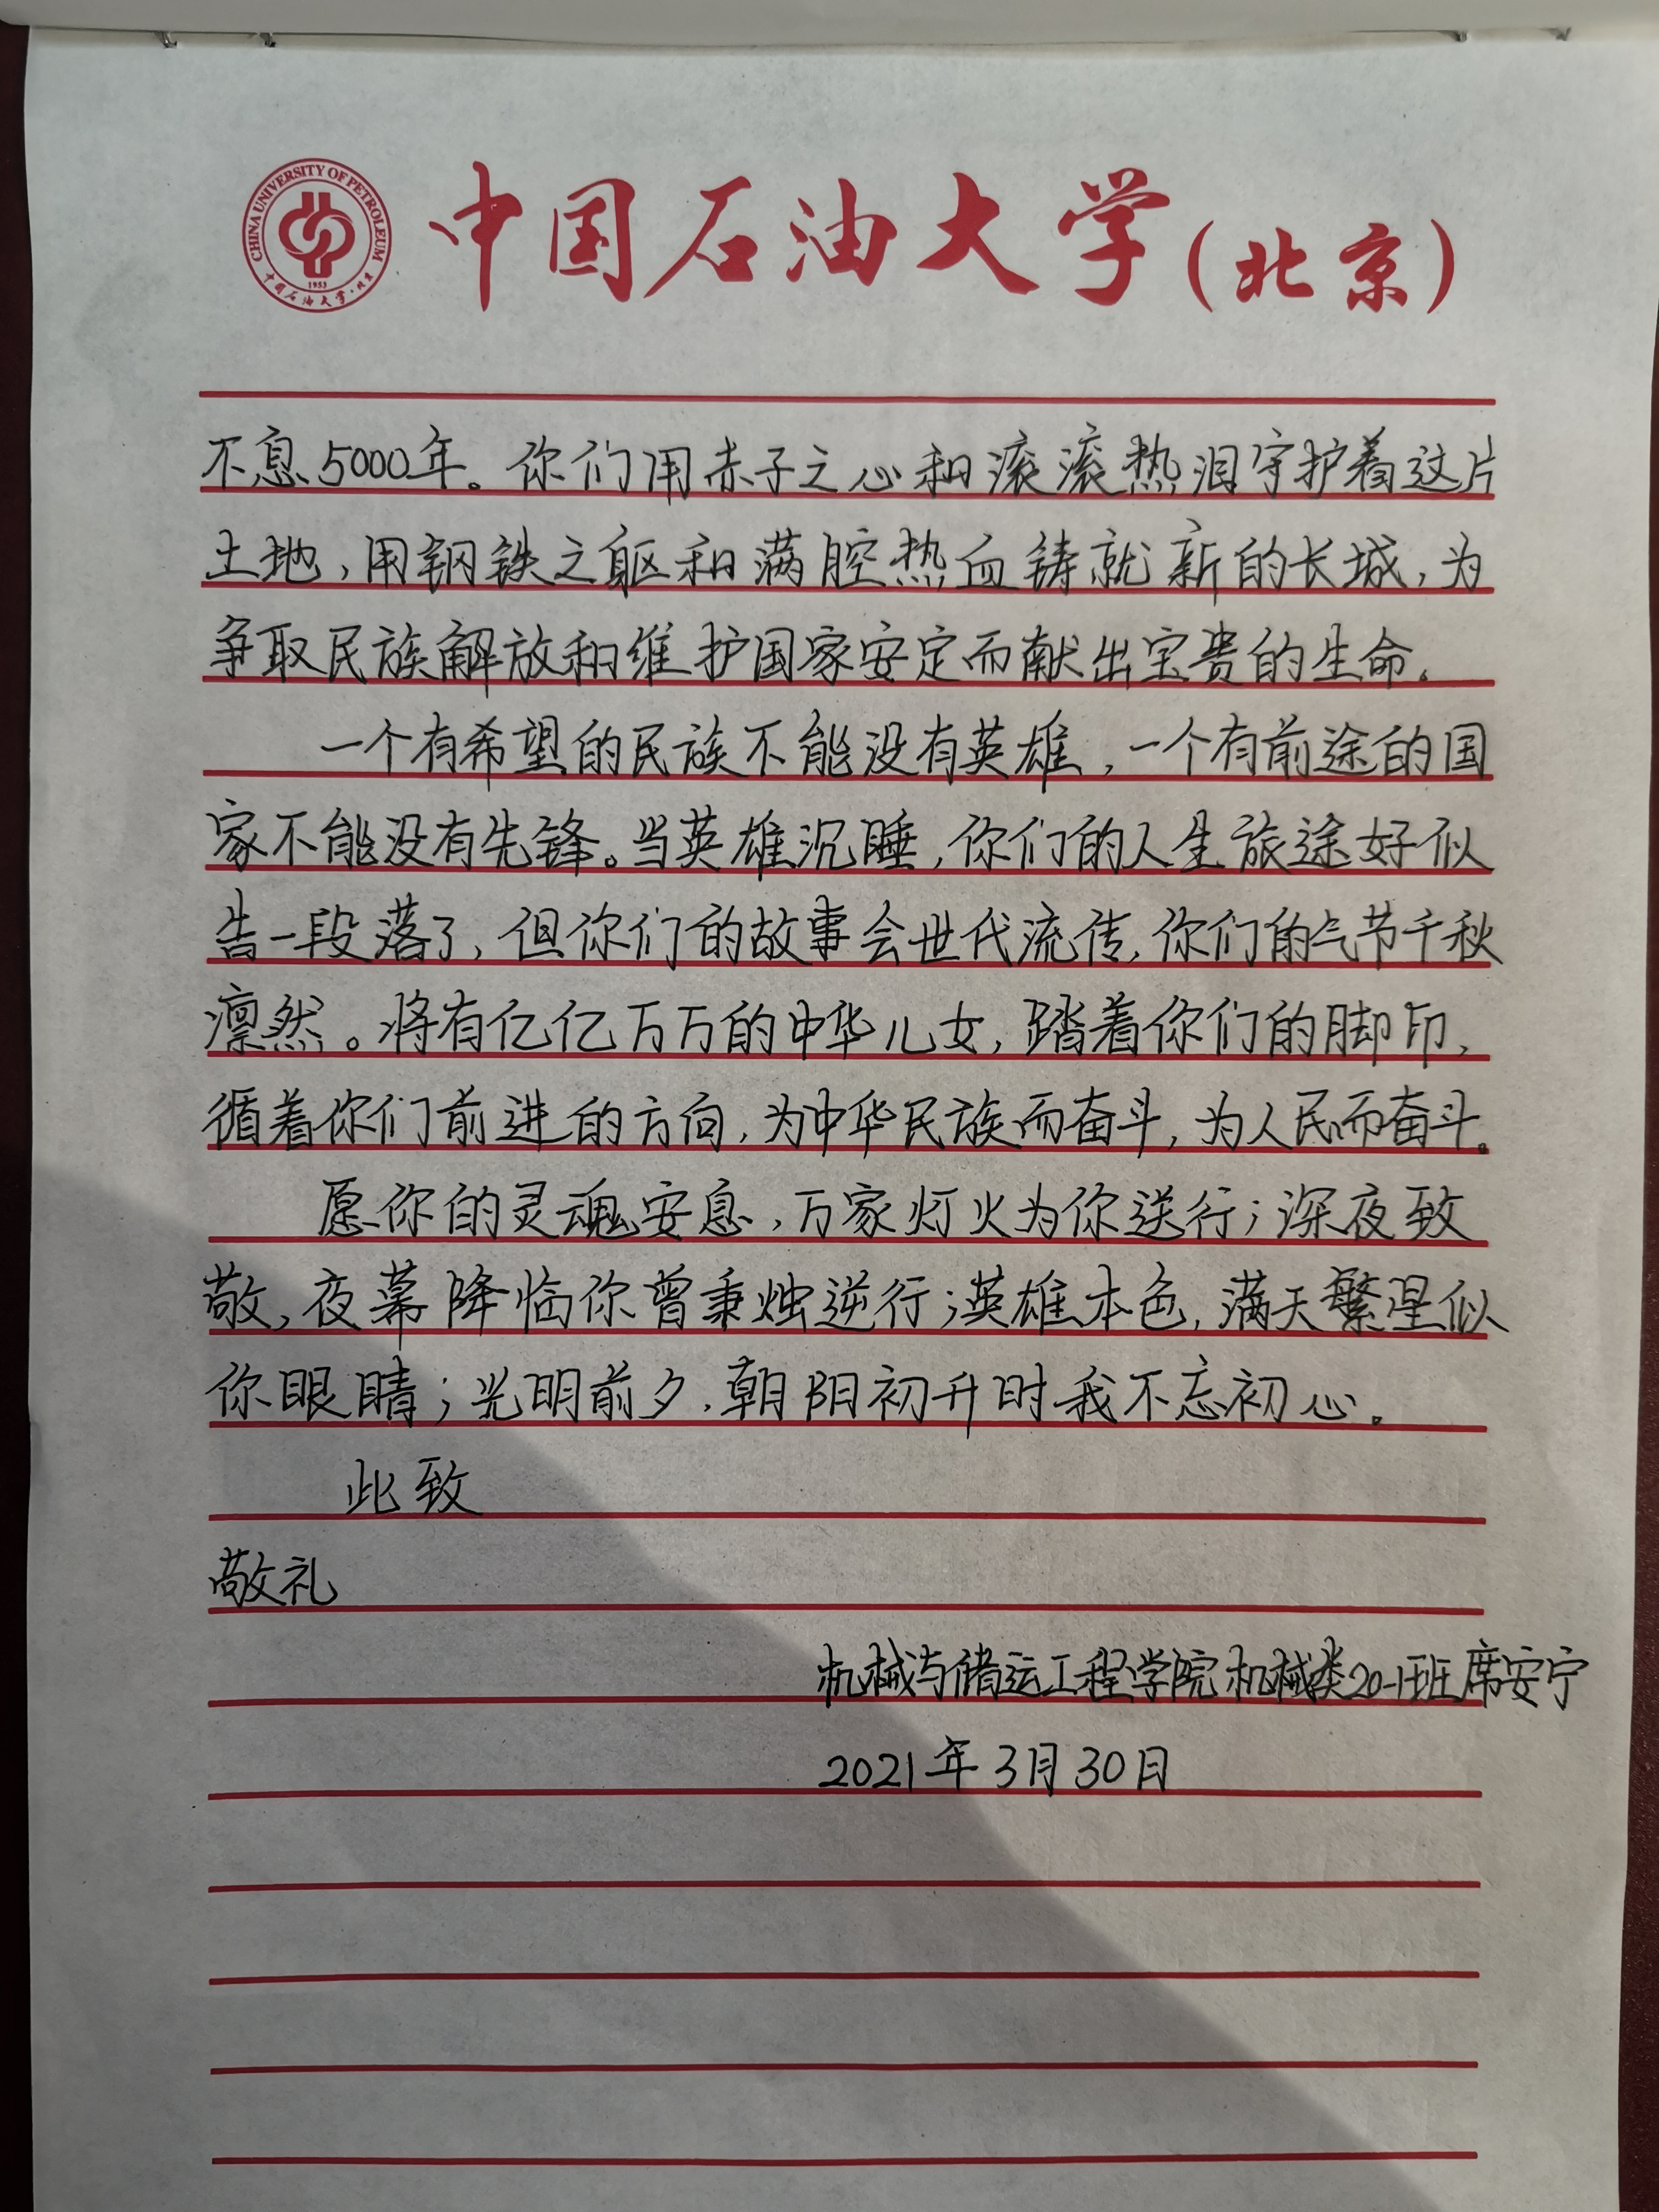 CHINA UNIVERSITY OF PETROLEUM
1953
中国石油大学·北京
中国石油大学(北京)
不息5000年。你们用赤子之心和滚滚热泪守护着这片
土地,用钢铁之躯和满腔热血铸就新的长城,为
争取民族解放和维护国家安定而献出宝贵的生命。
一个有希望的民族不能没有英雄,一个有前途的国
家不能没有先锋。当英雄沉睡,你们的人生旅途好似
告一段落了,但你们的故事会世代流传,你们的气节千秋
凛然。将有亿亿万万的中华儿女,踏着你们的脚印,
循着你们前进的方向,为中华民族而奋斗,为人民而奋斗。
愿你的灵魂安息,万家灯火为你送行;深夜致
敬,夜幕降临你曾秉烛逆行;英雄本色,满天繁星似
你眼睛;光明前夕,朝阳初升时我不忘初心。
此致
敬礼
机械与储运工程学院机械类20-1班席安宁
2021年3月30日